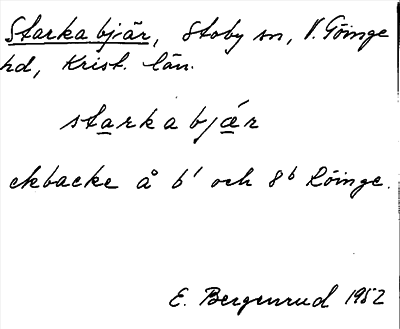 Starka bjär, Stoby sn, V. Göinge
hd, Krist. län.
starka bjär
ekbacke å b' och 8b Röinge.
E. Bergenrud 1952